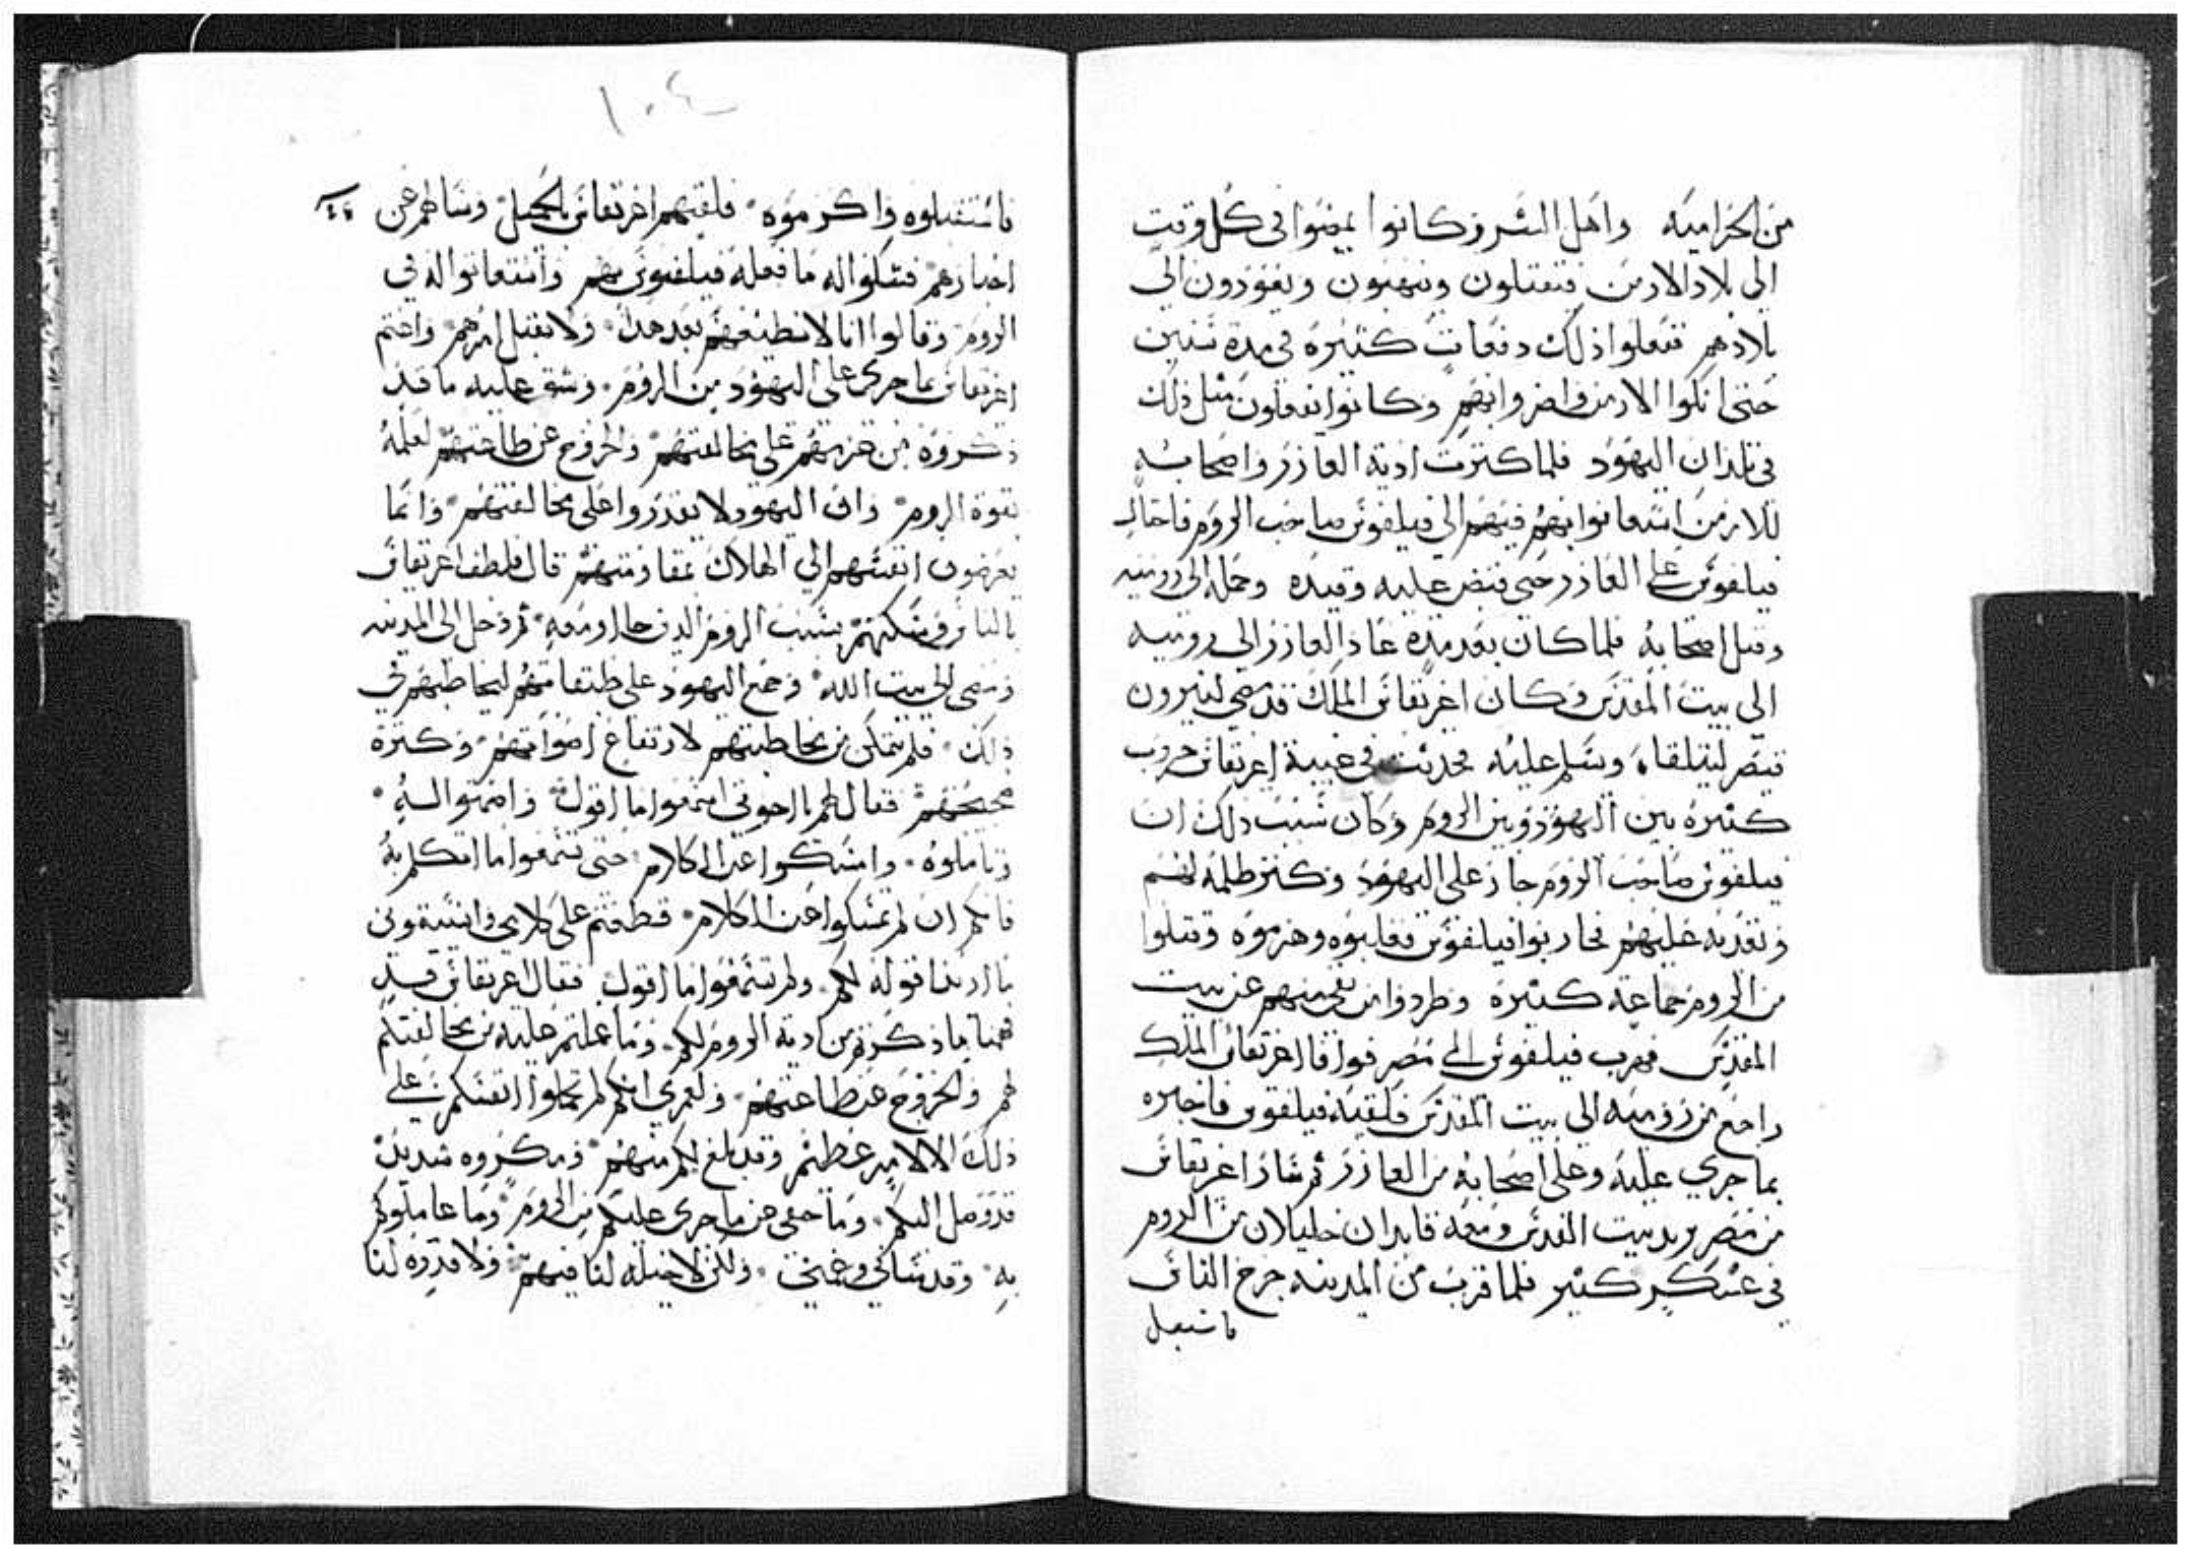 من الحراميه واهل الشر وكانوا يمضوا في كل وقت
الى بلاد الارمن فيقتلون وينهبون ويعودون الى
بلادهم ففعلوا ذلك دفعات كثيرة في مدة سنين
حتى انكوا الارمن واضروا بهم وكانوا يفعلون مثل ذلك
في بلدان اليهود فلما كثرت اذية العازر واصحابه
للارمن استعانوا بهم فيهم الى فيلقوس صاحب الروم فاحتال
فيلقوس على العازر حتى قبض عليه وقيده وحمله الى روميه
وقتل اصحابه فلما كان بعد مدة عاد العازر الى روميه
الى بيت المقدس وكان اغريقاس الملك قد مضى لنيرون
قيصر ليتلقاه ويسلم عليه فحدثت في غيبة اغريقاس حروب
كثيرة بين اليهود وبين الروم وكان سبب ذلك ان
فيلقوس صاحب الروم جار على اليهود وكثر ظلمه لهم
وتعديه عليهم فحاربوا فيلقوس فغلبوه وهزموه وقتلوا
من الروم جماعة كثيرة وطردوا من بقي منهم عن بيت
المقدس فهرب فيلقوس الى مصر فوافا اغريقاس الملك
راجع من روميه الى بيت المقدس فلقيه فيلقوس فاخبره
بما جرى عليه وعلى اصحابه من العازر ثم سار اغريقاس
من مصر يريد بيت المقدس ومعه قايدان جليلان من الروم
في عسكر كثير فلما قرب من المدينه خرج الناس
فاستقبل
١٠٤
فاستقبلوه واكرموه فلقيهم اغريقاس بالجميل وسالهم عن
اخبارهم فشكوا اله ما فعله فيلقوس بهم واستعانوا اله في
الروم وقالوا انا لا نطيعهم بعد هذا ولا نقبل امرهم واغتم
اغريقاس بما جرى على اليهود من الروم وشق عليه ما قد
ذكروه من عزمهم على مخالفتهم والخروج عن طاعتهم لعلمه
بقوة الروم وان اليهود لا يقدروا على مخالفتهم وانما
يعرضون انفسهم الى الهلاك بمقاومتهم قال فلطف اغريقاس
بالناس وسكنهم بسبب الروم الذين جاوا معه ثم دخل الى المدينه
ومضى الى بيت الله وجمع اليهود على طبقاتهم ليخاطبهم في
ذلك فلم يتمكن من مخاطبتهم لارتفاع اصواتهم وكثرة
ضجيجهم فقال لهم يا اخوتي اسمعوا ما اقول وانصتوا اليه
وتاملوه وامسكوا عن الكلام حتى تسمعوا ما اتكلم به
فانكم ان لم تمسكوا عن الكلام قطعتم علي كلامي وانسيتوني
ما اريد اقوله لكم ولم تسمعوا ما اقول فقال اغريقاس قد
فهمنا ما ذكرتم من اذية الروم لكم وما عملتم عليه من مخالفتكم
لهم والخروج عن طاعتهم ولعمري انكم لم تحملوا انفسكم على
ذلك الا لامر عظيم وقد بلغ لكم منهم ومكروه شديد
قد وصل اليكم وما خفى عني ما جرى عليكم من الروم وما عاملوكم
به وقد ساني وغمني ولكن لا حيلة لنا فيهم ولا قدره لنا